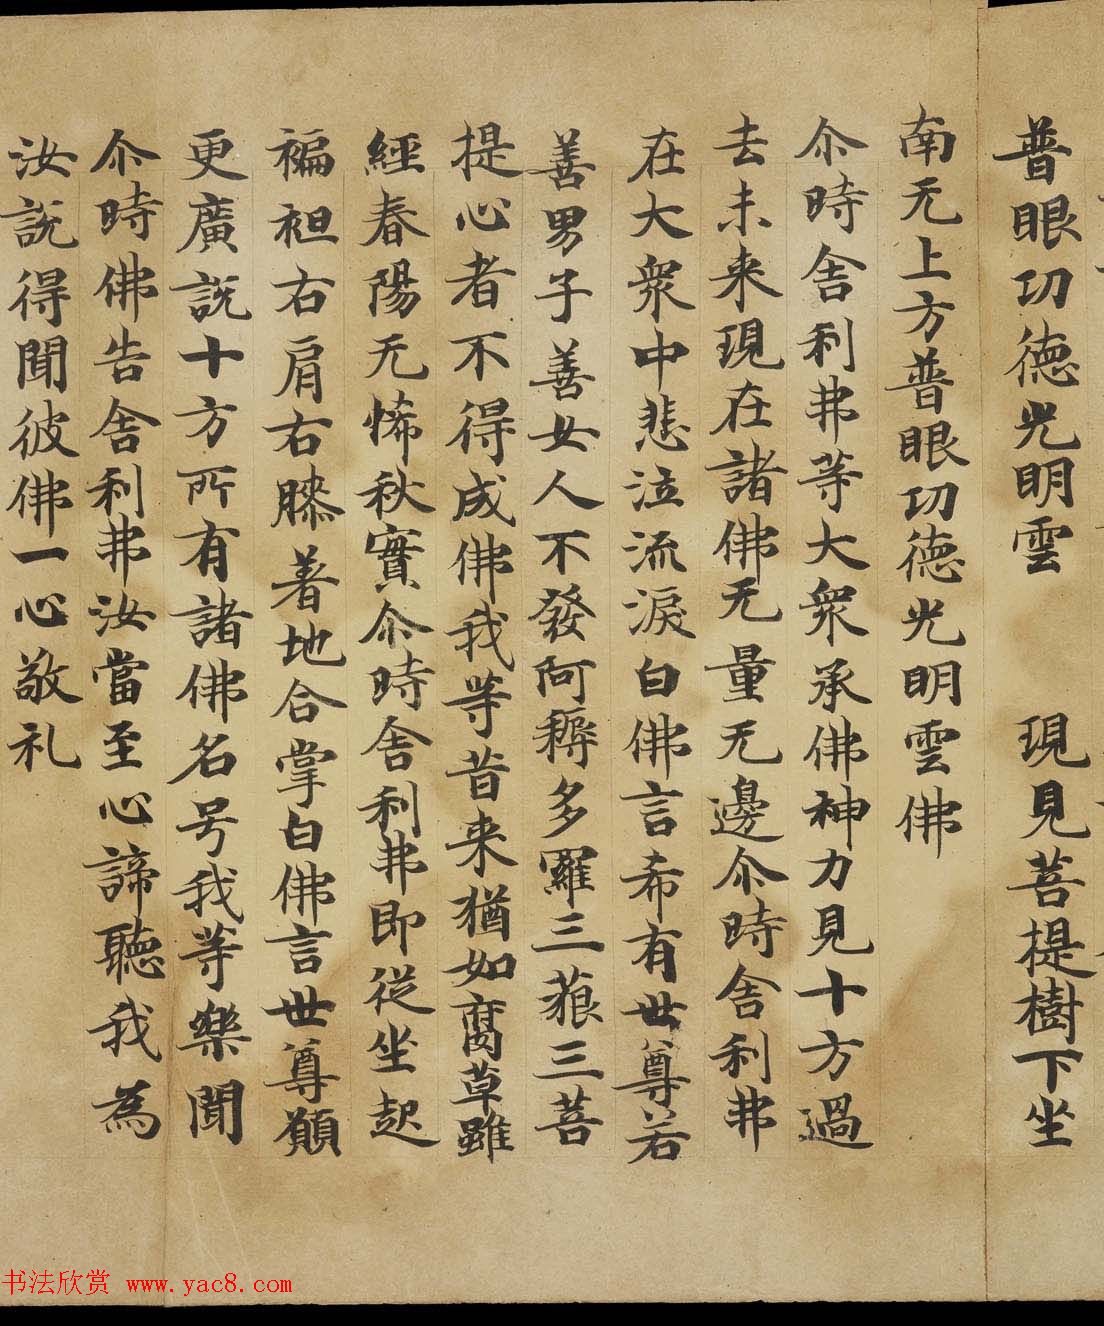 普眼功德光明雲　現見菩提樹下坐
南无上方普眼功德光明雲佛
尒時舍利弗等大衆承佛神力見十方過
去未来現在諸佛无量无邊尒時舍利弗
在大衆中悲泣流淚白佛言希有世尊若
善男子善女人不發阿耨多羅三藐三菩
提心者不得成佛我等昔来猶如腐草雖
經春陽无悕秋實尒時舍利弗即從坐起
褊袒右肩右膝著地合掌白佛言世尊願
更廣説十方所有諸佛名号我等樂聞
尒時佛告舍利弗汝當至心諦聽我為
汝説得聞彼佛一心敬礼
书法欣赏 www.yac8.com